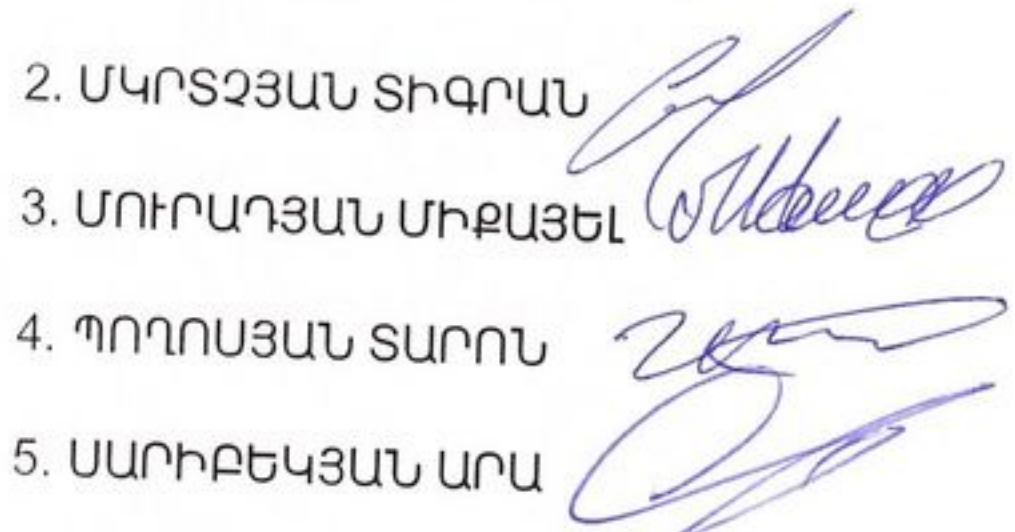 2. ՄԿՐՏՉՅԱՆ ՏԻԳՐԱՆ
3. ՄՈՒՐԱԴՅԱՆ ՄԻՔԱՅԵԼ
4. ՊՈՂՈՍՅԱՆ ՏԱՐՈՆ
5. ՍԱՐԻԲԵԿՅԱՆ ԱՐԱ